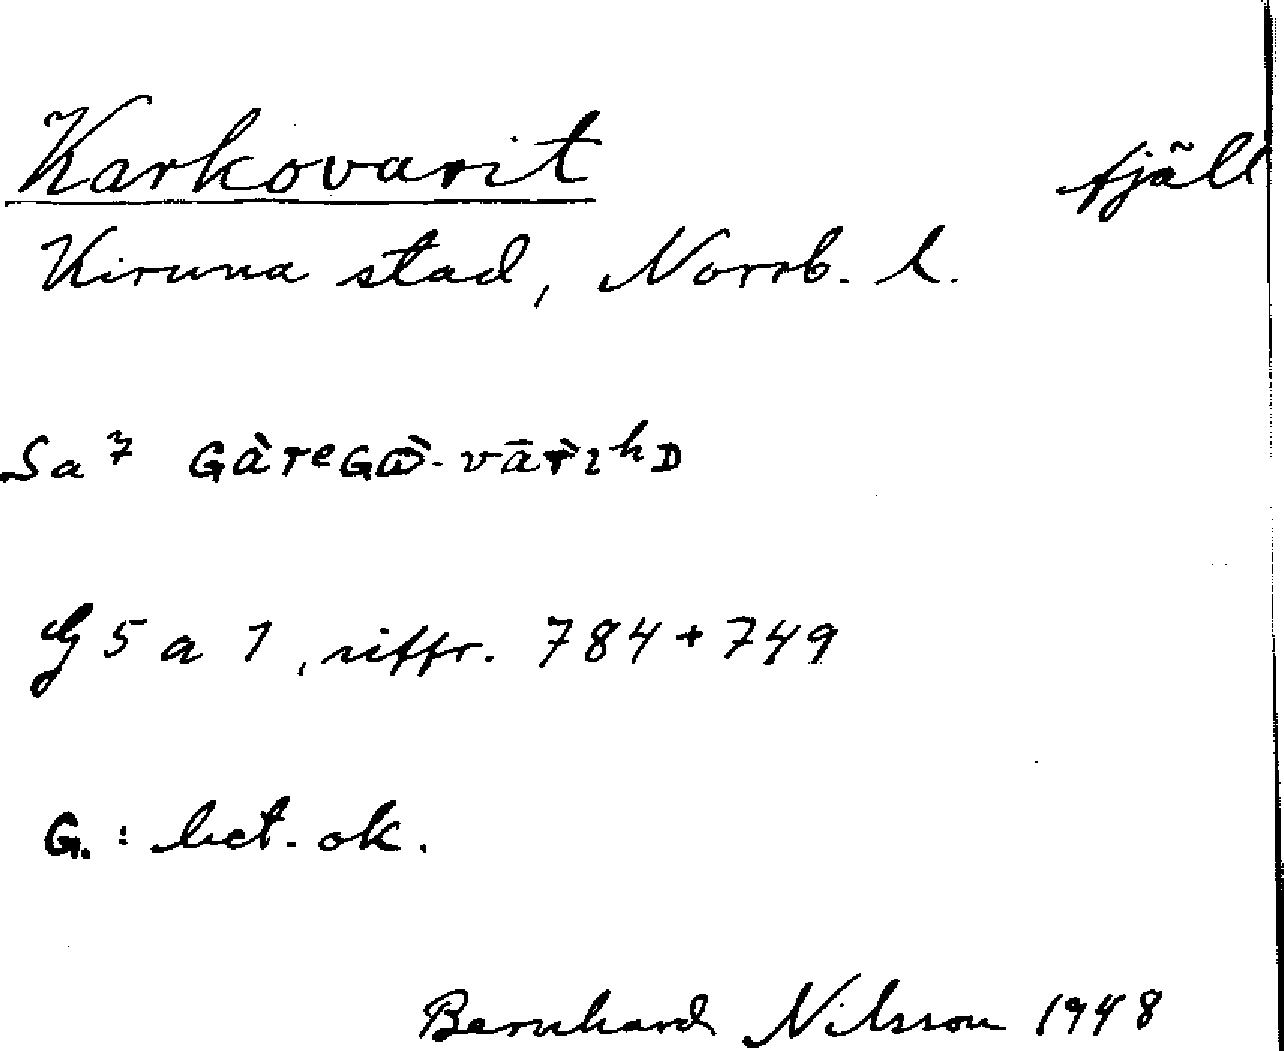 Karkovarit fjäll
Kiruna stad, Norrb. l.
Sa 7
G 5 a 1, siffr. 784 + 749
G. : bet. ok.
Bernhard Nilsson 1948